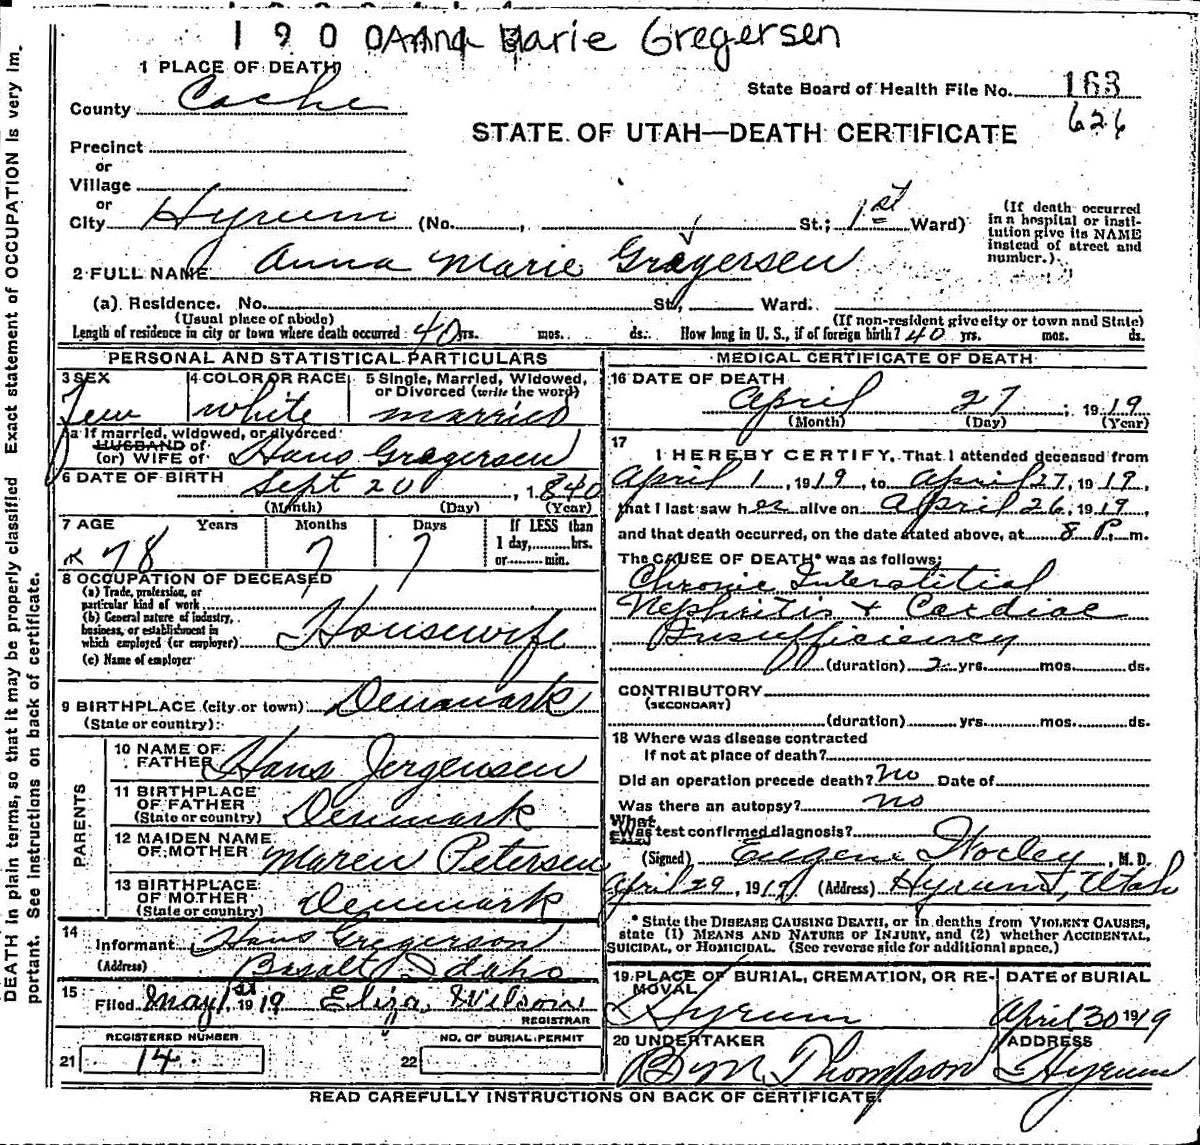 1 9 0 0 Anna Marie Gregersen
1 PLACE OF DEATH
County Cache
State Board of Health File No. 163
626
STATE OF UTAH—DEATH CERTIFICATE
Precinct
or
Village
or
City Hyrum (No. , St.; 1st Ward)
(If death occurred in a hospital or institution give its NAME instead of street and number.)
2 FULL NAME Anna Marie Gregersen
(a) Residence. No. St., Ward.
(Usual place of abode) (If non-resident give city or town and State)
Length of residence in city or town where death occurred 40 yrs. mos. ds. How long in U. S., if of foreign birth? 40 yrs. mos. ds.
PERSONAL AND STATISTICAL PARTICULARS
3 SEX Fem
4 COLOR OR RACE white
5 Single, Married, Widowed, or Divorced (write the word) married
5a If married, widowed, or divorced
HUSBAND of
(or) WIFE of Hans Gregersen
6 DATE OF BIRTH Sept 20, 1840
(Month) (Day) (Year)
7 AGE Years Months Days If LESS than
1 day, hrs.
or min.
78 7 7
8 OCCUPATION OF DECEASED
(a) Trade, profession, or particular kind of work
(b) General nature of industry, business, or establishment in which employed (or employer) Housewife
(c) Name of employer
9 BIRTHPLACE (city or town) Denmark
(State or country)
PARENTS
10 NAME OF FATHER Hans Jergensen
11 BIRTHPLACE OF FATHER (State or country) Denmark
12 MAIDEN NAME OF MOTHER Maren Petersen
13 BIRTHPLACE OF MOTHER (State or country) Denmark
14
Informant Hans Gregerson
(Address) Basalt Idaho
15
Filed May 1st, 1919 Eliza Wilson
REGISTRAR
REGISTERED NUMBER NO. OF BURIAL PERMIT
21 14 22
MEDICAL CERTIFICATE OF DEATH
16 DATE OF DEATH
April 27, 1919
(Month) (Day) (Year)
17
I HEREBY CERTIFY, That I attended deceased from
April 1, 1919, to April 27, 1919,
that I last saw her alive on April 26, 1919,
and that death occurred, on the date stated above, at 8 P. m.
The CAUSE OF DEATH* was as follows:
Chronic Interstitial
Nephritis + Cardiac
Insufficiency
(duration) 2 yrs. mos. ds.
CONTRIBUTORY
(SECONDARY)
(duration) yrs. mos. ds.
18 Where was disease contracted
If not at place of death?
Did an operation precede death? no Date of
Was there an autopsy? no
What test confirmed diagnosis?
(Signed) Eugene Worley, M. D.
April 29, 1919 (Address) Hyrum, Utah
* State the DISEASE CAUSING DEATH, or in deaths from VIOLENT CAUSES, state (1) MEANS AND NATURE OF INJURY, and (2) whether ACCIDENTAL, SUICIDAL, or HOMICIDAL. (See reverse side for additional space.)
19 PLACE OF BURIAL, CREMATION, OR REMOVAL DATE of BURIAL
Hyrum April 30 1919
20 UNDERTAKER ADDRESS
Thompson Hyrum
READ CAREFULLY INSTRUCTIONS ON BACK OF CERTIFICATE.
DEATH in plain terms, so that it may be properly classified Exact statement of OCCUPATION is very im.
portant. See instructions on back of certificate.